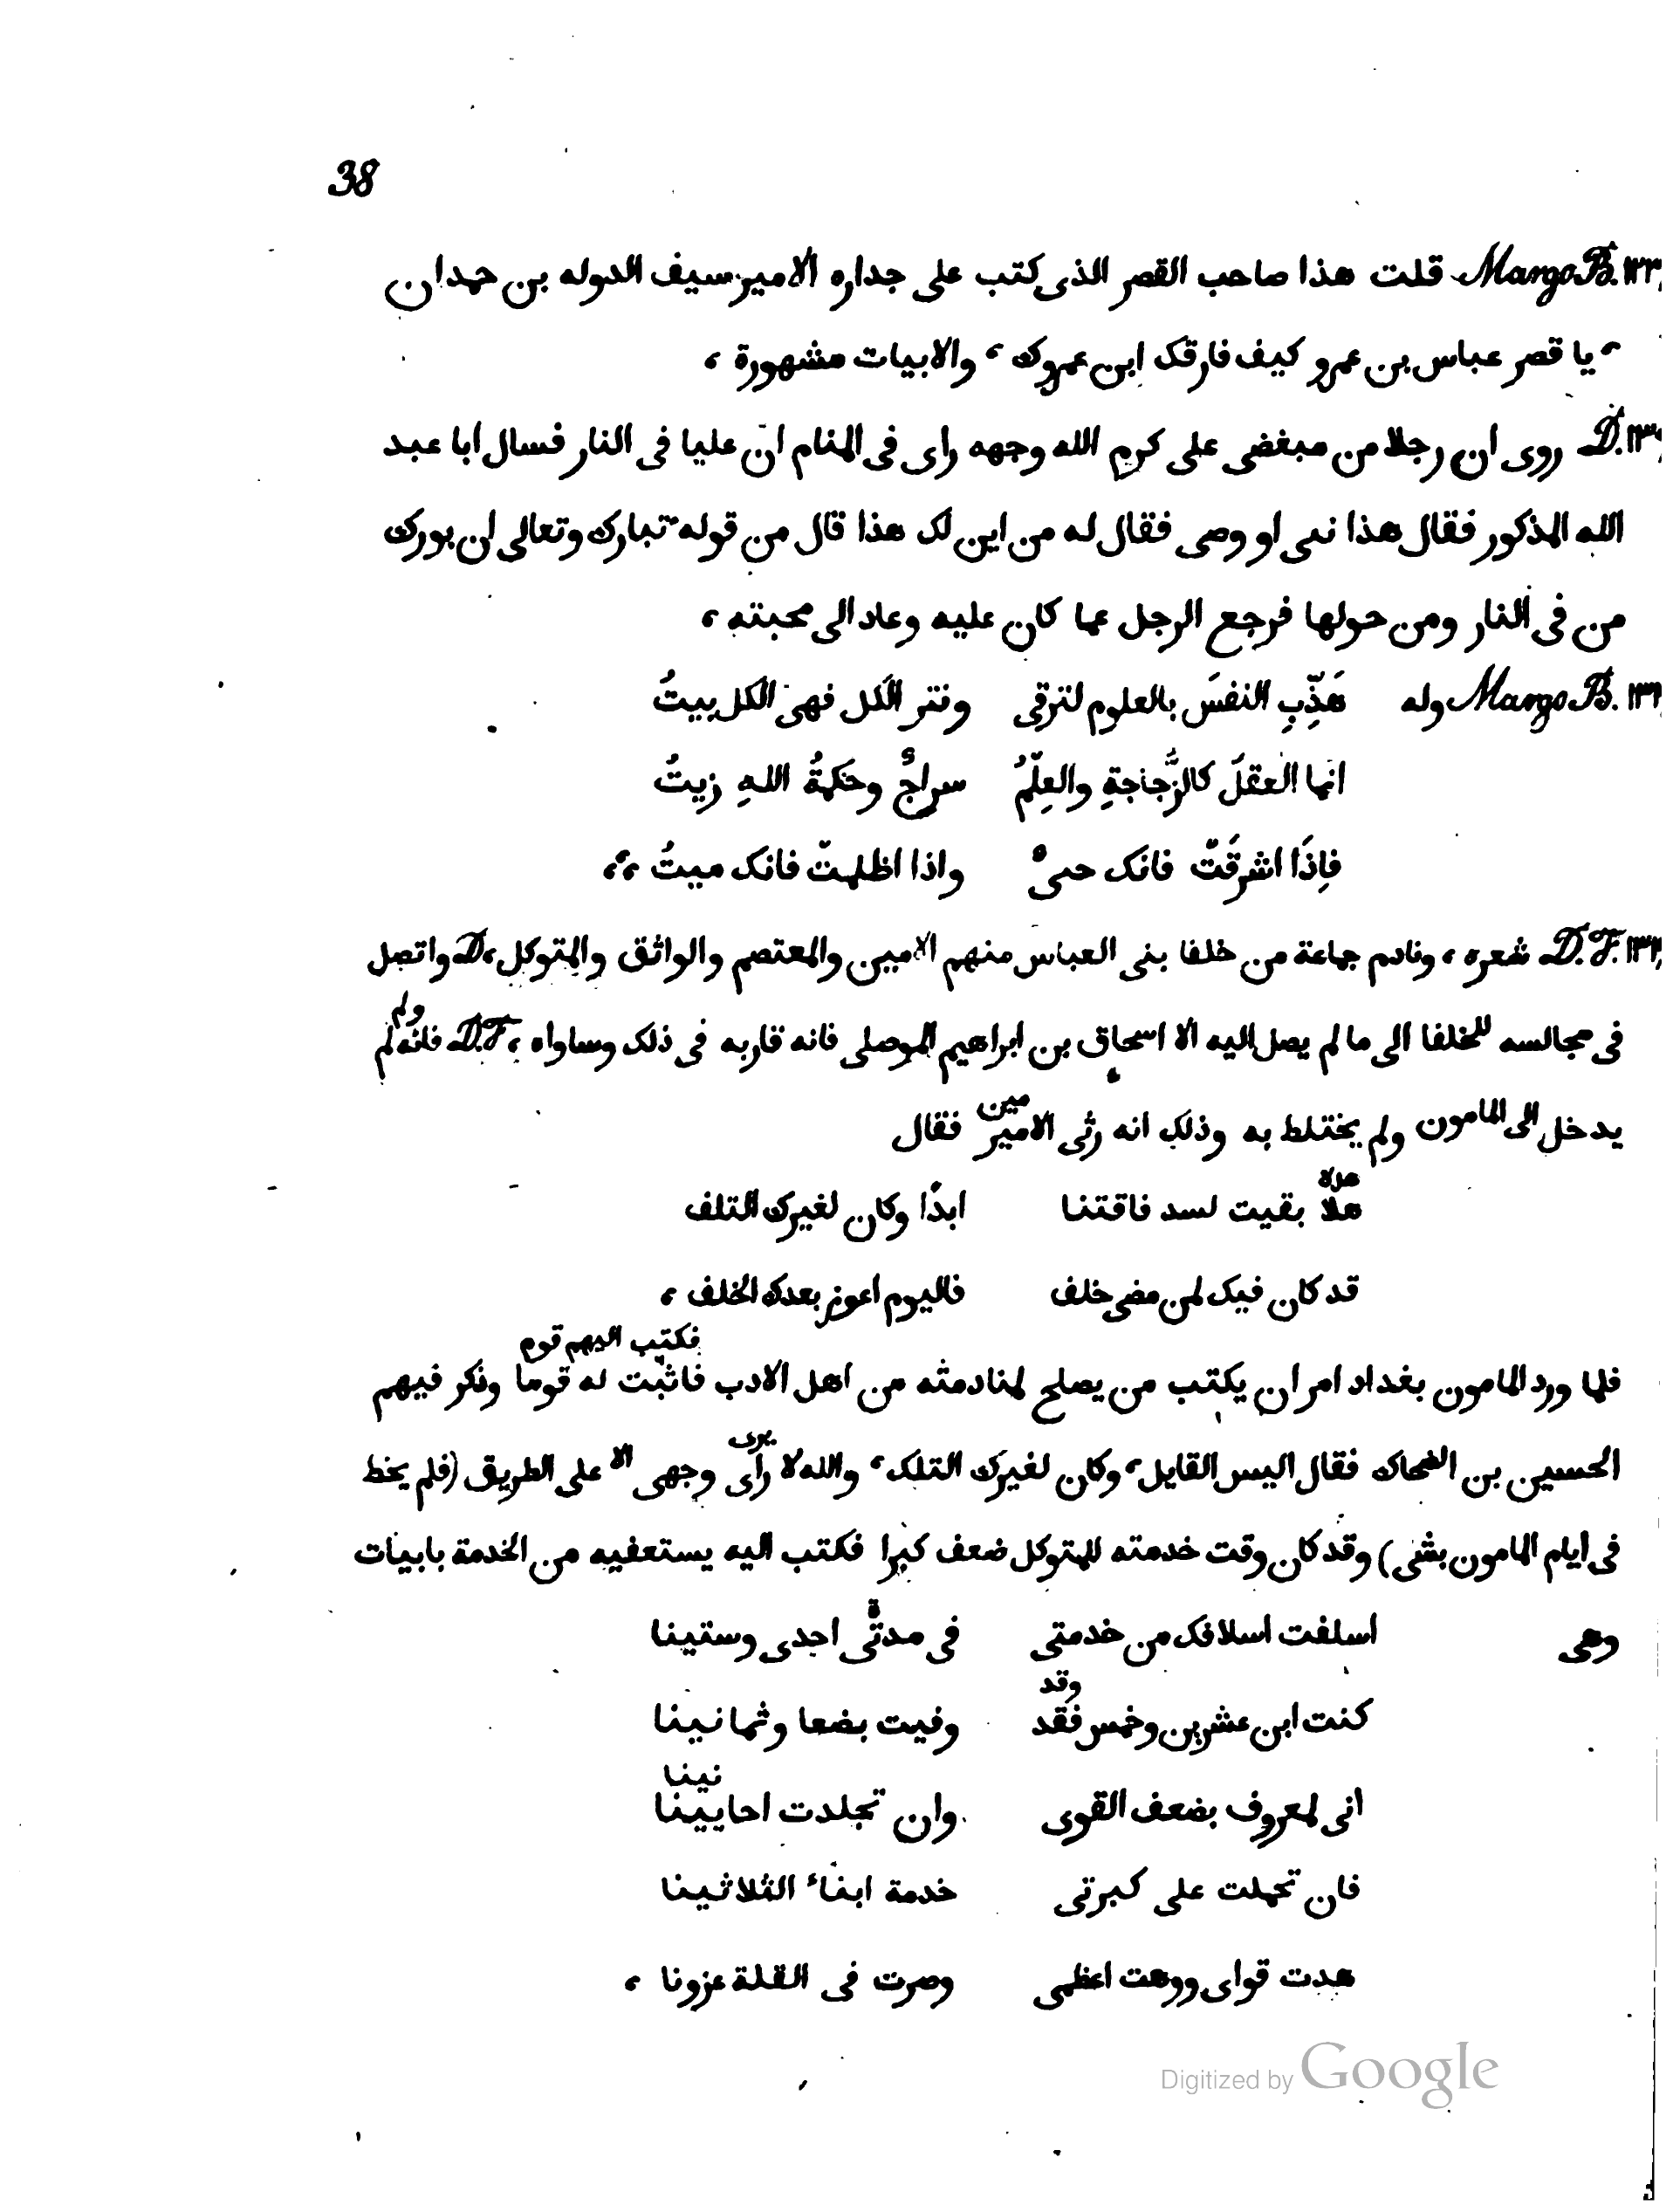 38
Margo B. ١٢٣ قلت هذا صاحب القصر الذى كتب على جداره الامير سيف الدوله بن حمدان
، يا قصر عباس بن عمرو كيف فارقك ابن عمروك ، والابيات مشهورة ،
D. ١٣ روى ان رجلا من مبغضى على كرم الله وجهه راى فى المنام ان عليا فى النار فسال ابا عبد
الله المذكور فقال هذا نبى او وصى فقال له من اين لك هذا قال من قوله تبارك وتعالى ان بورك
من فى النار ومن حولها فرجع الرجل عما كان عليه وعاد الى محبته ،
Margo B. ١٣١ وله هَذِّبِ النفسَ بالعلوم لترقى وتتر الكل فهى الكل بيتُ
انما العقلَ كالزُّجاجةِ والعِلْمُ سراجٌ وحكمةُ اللهِ زيتُ
فإِذَا اشرقَتْ فانك حىٌّ واذا اظلمتْ فانك ميتُ ،،
D. F. ١٣٢ شعره ، ونادم جماعة من خلفا بنى العباس منهم الامين والمعتصم والواثق والمتوكل ، D. واتصل
ولم
فى مجالسه للخلفا الى ما لم يصل اليه الا اسحاق بن ابراهيم الموصلى فانه قاربه فى ذلك وساواه ، D. F. فانه لم
مين
يدخل الى المامون ولم يختلط به وذلك انه رثى الامير فقال
هلا بقيت لسد فاقتنا ابدًا وكان لغيرك التلف
قد كان فيك لمن مضى خلف فاليوم اعوز بعدك الخلف ،
فكتب اليهم قوم
فلما ورد المامون بغداد امر ان يكتب من يصلح لمنادمته من اهل الادب فاثبت له قوما وذكر فيهم
يرى
الحسين بن الضحاك فقال اليس القايل ، وكان لغيرك التلك ، والله لا رأى وجهى الا على الطريق (فلم يخط
فى ايام المامون بشى) وقد كان وقت خدمته للمتوكل ضعف كبرا فكتب اليه يستعفيه من الخدمة بابيات
وهى اسلفت اسلافك من خدمتى فى مدتى احدى وستينا
وقد
كنت ابن عشرين وخمس فقد وفيت بضعا وثمانينا
نينا
انى لمعروف بضعف القوى وان تجلدت احايينا
فان تحملت على كبرتى خدمة ابناء الثلاثينا
هدت قواى ووهت اعظمى وصرت فى القلة عزونا ،
Digitized by Google